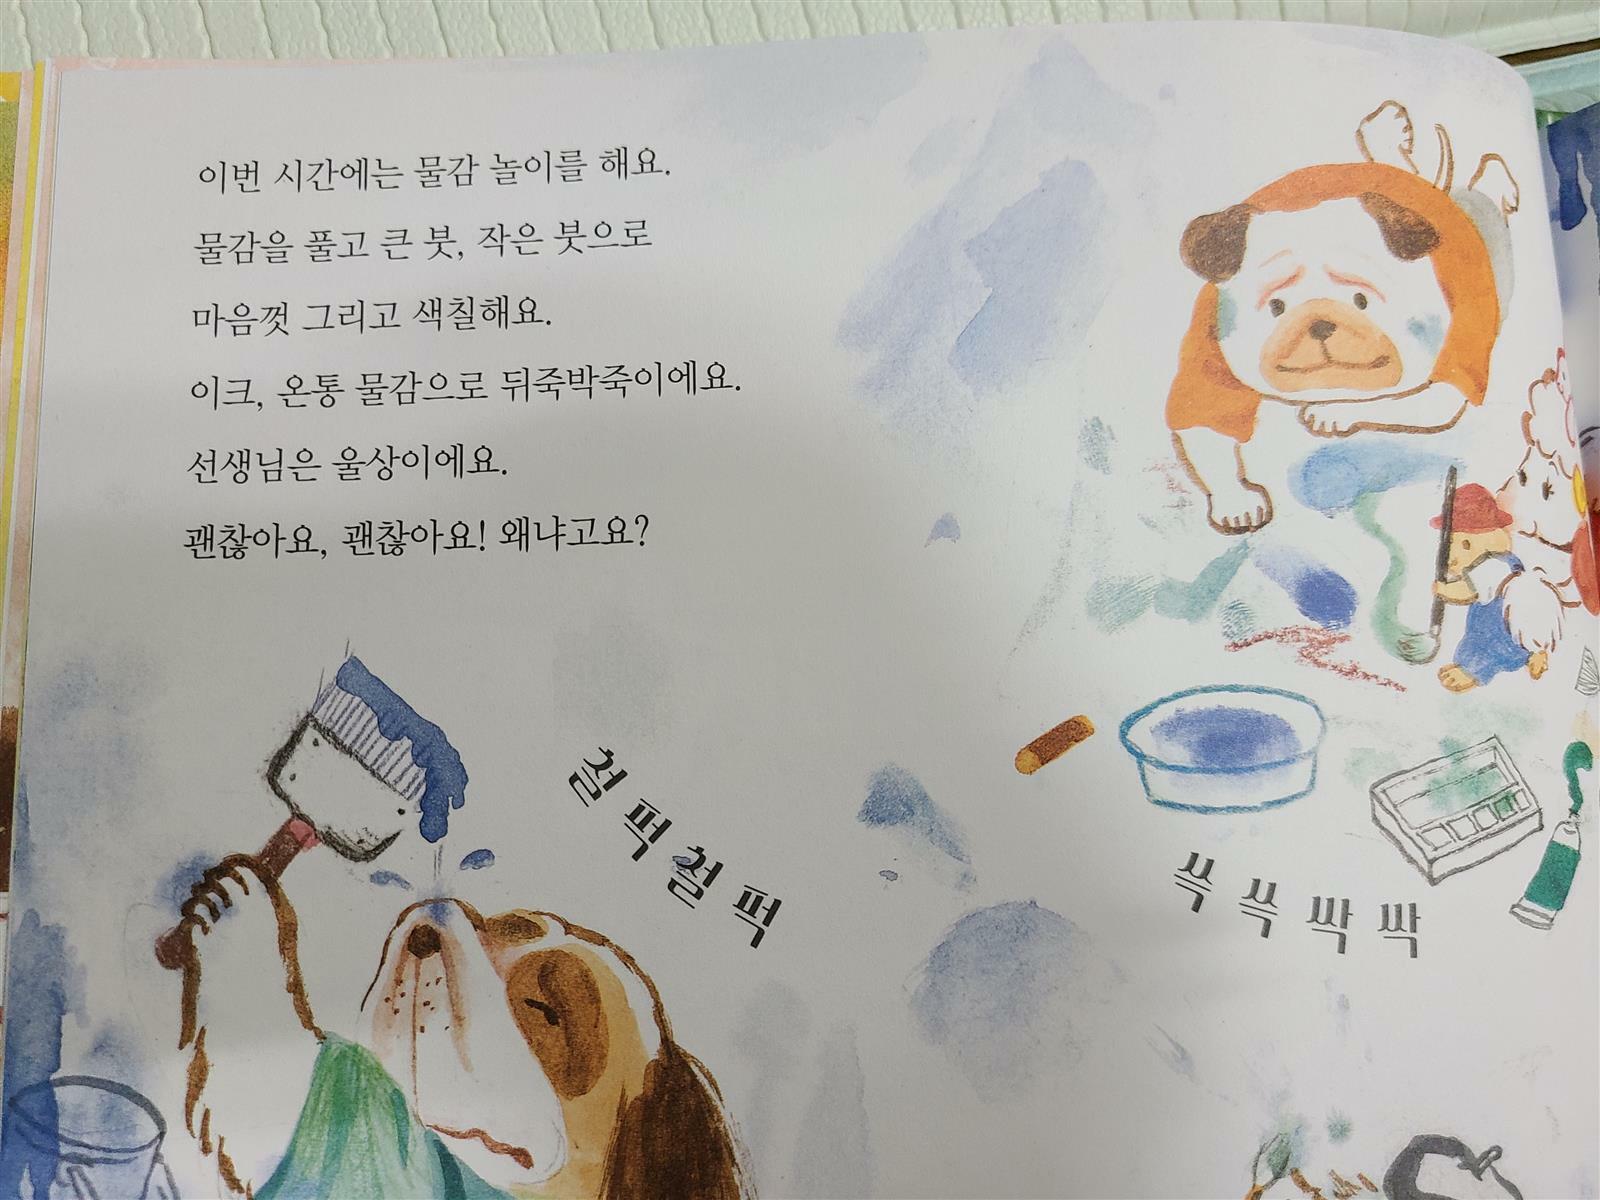 이번 시간에는 물감 놀이를 해요.
물감을 풀고 큰 붓, 작은 붓으로
마음껏 그리고 색칠해요.
이크, 온통 물감으로 뒤죽박죽이에요.
선생님은 울상이에요.
괜찮아요, 괜찮아요! 왜냐고요?
첨퍽첨퍽
쓱쓱싹싹